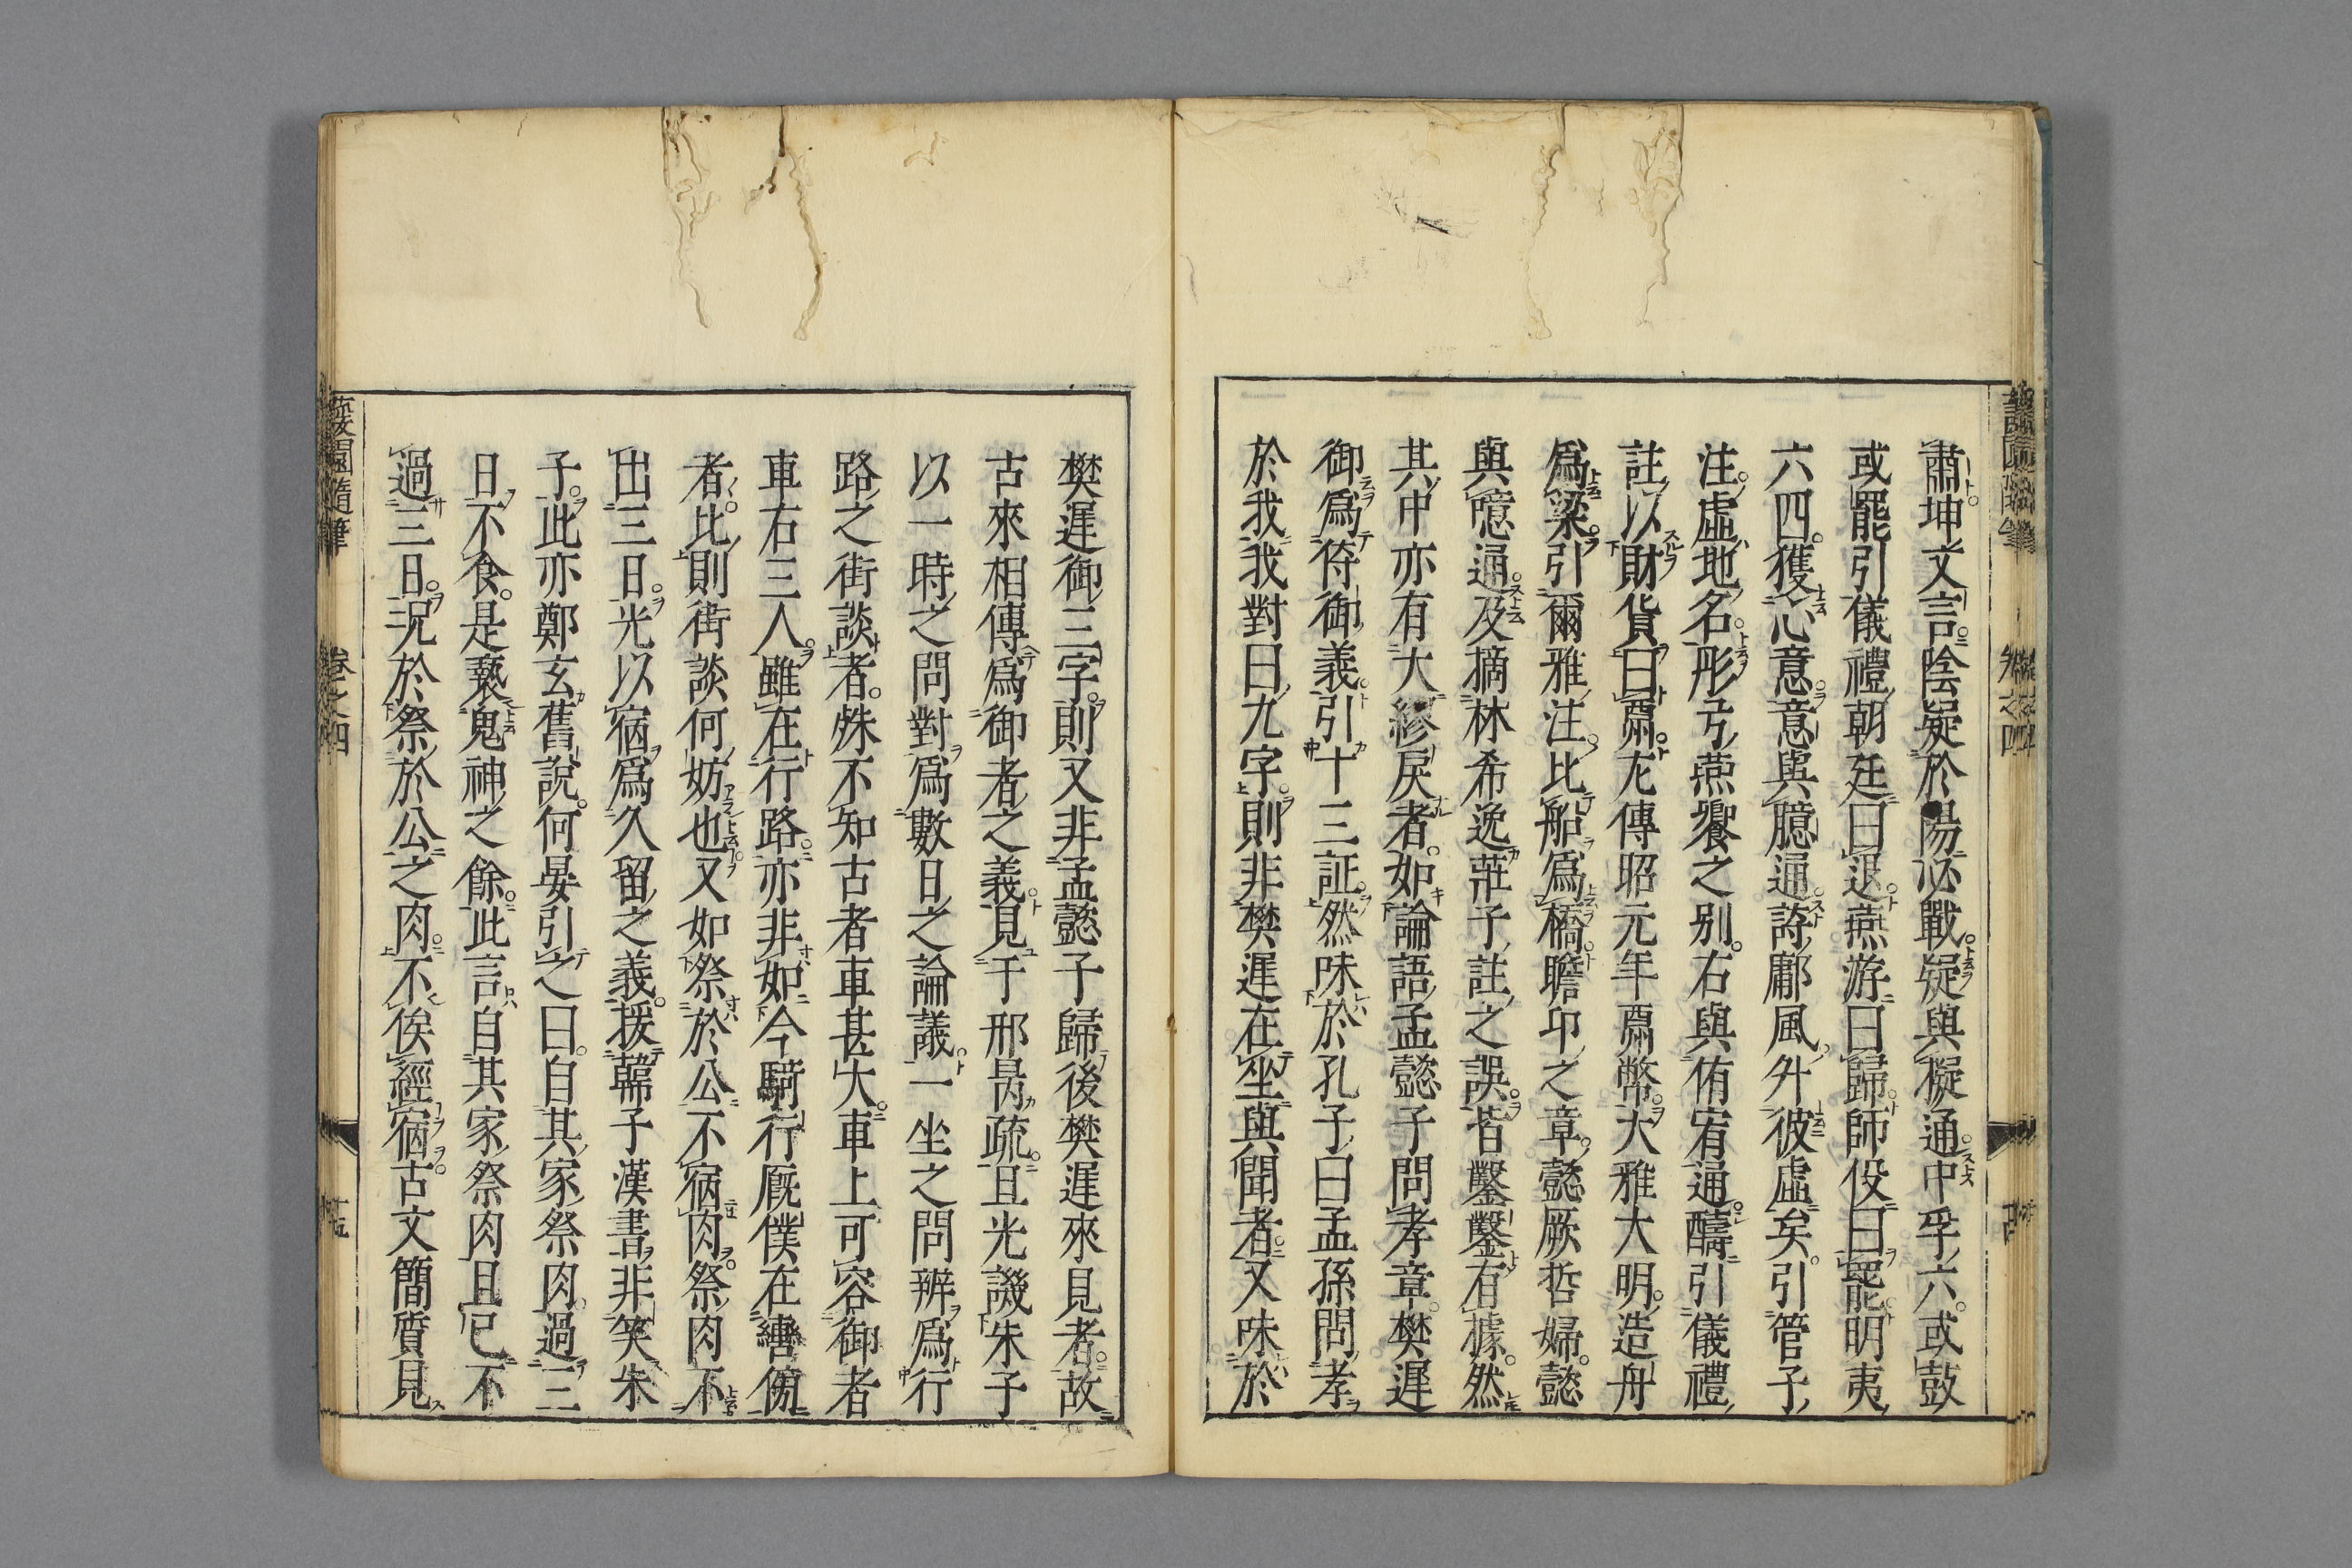 肅坤文言陰疑於陽必戰疑與擬通中孚六或鼓
或罷引儀禮朝廷曰退燕游曰歸師役曰罷明夷
六四獲心意意與臆通詩鄘風升彼虛矣引管子
注虛地名彤弓燕饗之別右與侑宥通醻引儀禮
註以財貨曰酬左傳昭元年酬幣大雅大明造舟
爲梁引爾雅注比船爲橋瞻卬之章懿厥哲婦懿
與噫通及摘林希逸莊子註之誤皆鑿鑿有據然
其中亦有大繆戾者如論語孟懿子問孝章樊遲
御爲侍御義引十三証然味於孔子曰孟孫問孝
於我我對曰九字則非樊遲在坐與聞者又味於
樊遲御三字則又非孟懿子歸後樊遲來見者故
古來相傳爲御者之義見于邢昺疏且光譏朱子
以一時之問對爲數日之論議一坐之問辨爲行
路之街談者殊不知古者車甚大車上可容御者
車右三人雖在行路亦非如今騎行厩僕在轡傍
者比則街談何妨也又如祭於公不宿肉祭肉不
出三日光以宿爲久留之義援韓子漢書非笑朱
子此亦鄭玄舊說何晏引之曰自其家祭肉過三
日不食是褻鬼神之餘此言自其家祭肉且已不
過三日況於祭於公之肉不俟經宿古文簡質見
蘐園隨筆 卷之四